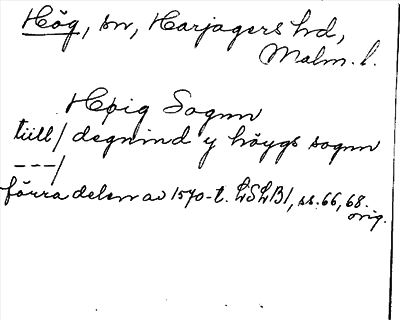 Hög, sn, Harjagers hd,
Malm. l.
Høig Sognn
tiill / degnind y höygs sognn
---/
förra delen av 1570-t. LSLB1, ss. 66, 68.
orig.